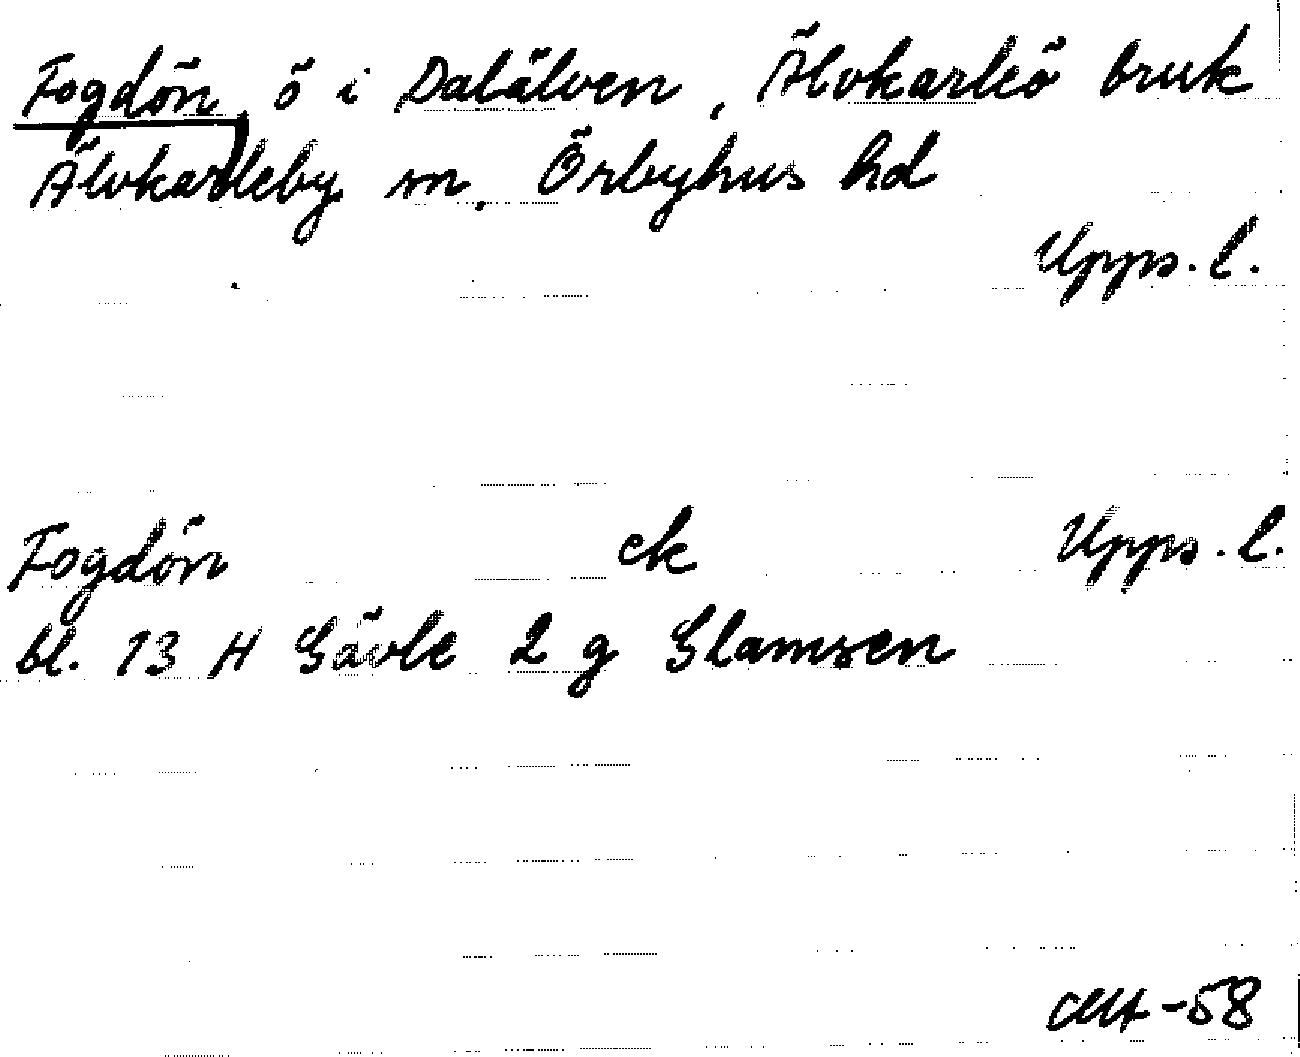 Fogdön, ö i Dalälven, Älvkarleö bruk
Älvkarleby sn. Örbyhus hd
Upps. l.
Fogdön ek Upps. l.
bl. 13 H Gävle 2 g Glamsen
-58